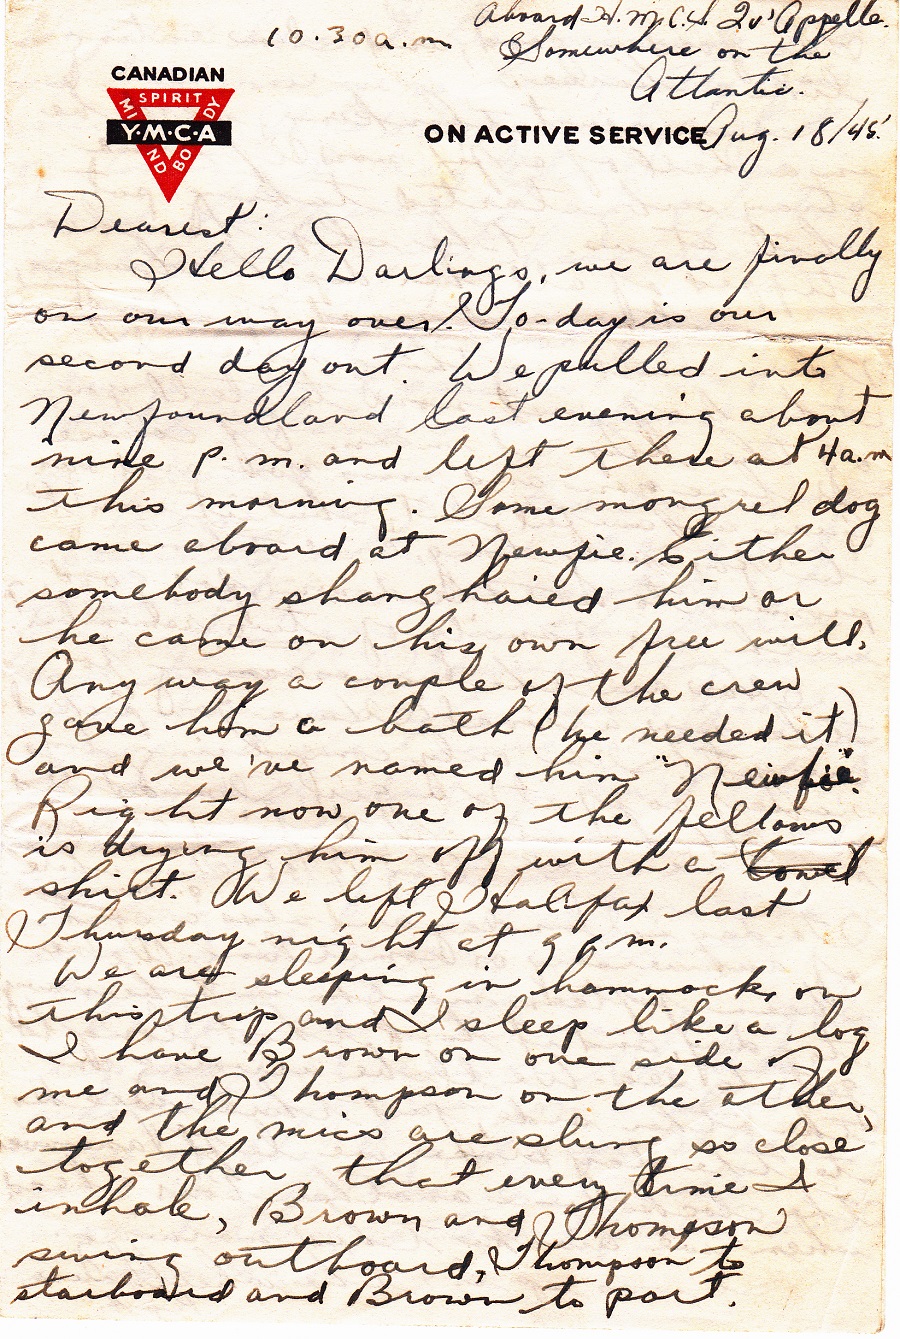 10.30 a.m
Aboard H.M.C.S. Qu'Appelle.
Somewhere on the
Atlantic.
CANADIAN
SPIRIT
MIND
BODY
Y·M·C·A
ON ACTIVE SERVICE Aug. 18/45.
Dearest:
Hello Darlings, we are finally
on our way over! To-day is our
second day out. We pulled into
Newfoundland last evening about
nine p.m. and left there at 4 a.m
this morning. Some mongrel dog
came aboard at Newfie. Either
somebody shanghaied him or
he came on his own free will.
Any way a couple of the crew
gave him a bath (he needed it)
and we've named him "Newfie".
Right now one of the fellows
is drying him off with a towel
shirt. We left Halifax last
Thursday night at 9 p.m.
We are sleeping in hammocks on
this trip and I sleep like a log
I have Brown on one side of
me and Thompson on the other,
and the mics are slung so close
together that every time I
inhale, Brown and Thompson
swing outboard, Thompson to
starboard and Brown to port.